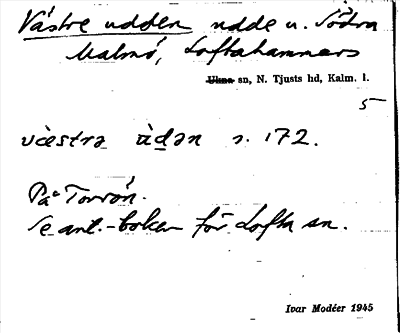 Västre udden udde u. Södra
Malmö, Loftahammars
Ukna sn, N. Tjusts hd, Kalm. l.
5
væstrə ùdən s. 172.
På Torrön.
Se ant.-boken för Lofta sn.
Ivar Modéer 1945